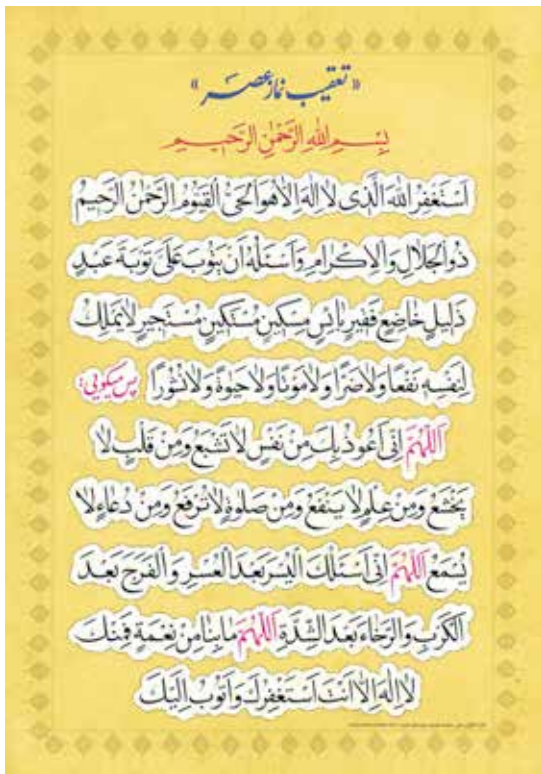 «تعقیب نماز عصر»
بِسْمِ اللهِ الرَّحْمٰنِ الرَّحیمِ
اَسْتَغْفِرُ اللهَ الَّذی لا اِلٰهَ اِلاّ هُوَ الْحَیُّ الْقَیُّومُ الرَّحْمٰنُ الرَّحیمُ
ذُو الْجَلالِ وَالْاِکْرامِ وَاَسْئَلُهُ اَنْ یَتُوبَ عَلَیَّ تَوْبَةَ عَبْدٍ
ذَلیلٍ خاضِعٍ فَقیرٍ بائِسٍ مِسْکینٍ مُسْتَکینٍ مُسْتَجیرٍ لا یَمْلِکُ
لِنَفْسِهِ نَفْعًا وَلا ضَرًّا وَلا مَوْتًا وَلا حَیٰوةً وَلا نُشُورًا پس میگویی:
اَللّٰهُمَّ اِنّی اَعُوذُ بِکَ مِنْ نَفْسٍ لا تَشْبَعُ وَمِنْ قَلْبٍ لا
یَخْشَعُ وَمِنْ عِلْمٍ لا یَنْفَعُ وَمِنْ صَلٰوةٍ لا تُرْفَعُ وَمِنْ دُعاءٍ لا
یُسْمَعُ اَللّٰهُمَّ اِنّی اَسْئَلُکَ الْیُسْرَ بَعْدَ الْعُسْرِ وَالْفَرَجَ بَعْدَ
الْکَرْبِ وَالرَّخاءَ بَعْدَ الشِّدَّةِ اَللّٰهُمَّ ما بِنا مِنْ نِعْمَةٍ فَمِنْکَ
لا اِلٰهَ اِلاّ اَنْتَ اَسْتَغْفِرُکَ وَاَتُوبُ اِلَیْکَ